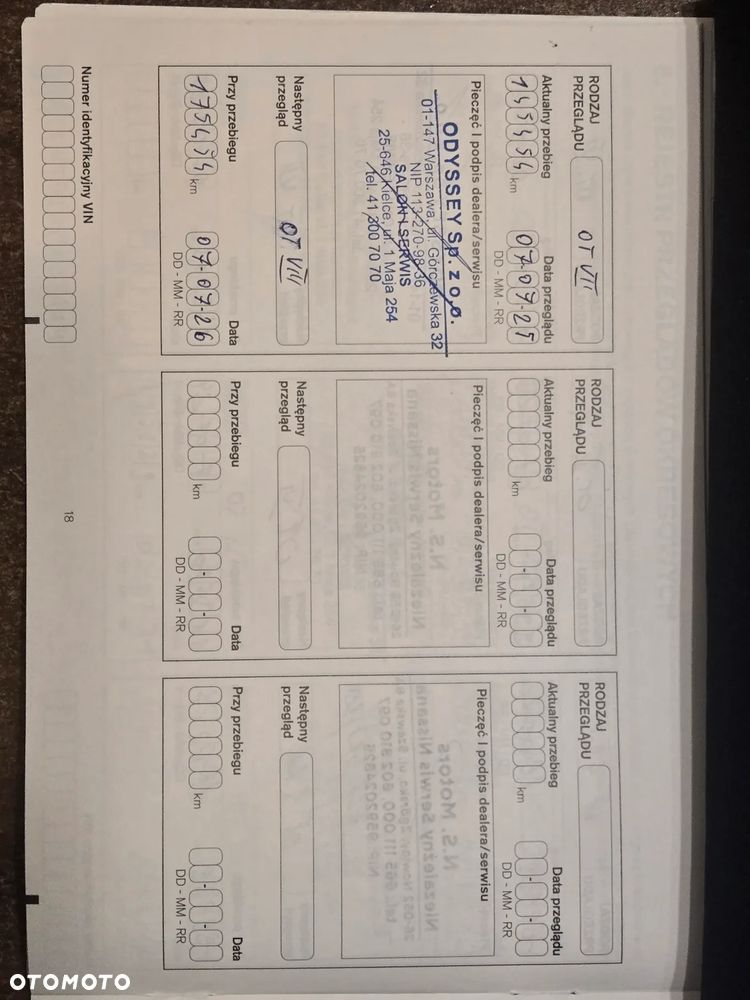 RODZAJ
PRZEGLĄDU
OT VII
Aktualny przebieg
Data przeglądu
145454 km
07-07-25
DD - MM - RR
Pieczęć i podpis dealera/serwisu
ODYSSEY Sp. z o.o.
01-147 Warszawa, ul. Górczewska 32
NIP 113-270-98-36
SALON I SERWIS
25-646 Kielce, ul. 1 Maja 254
tel. 41 300 70 70
Następny
przegląd
OT VIII
Przy przebiegu
Data
175454 km
07-07-26
DD - MM - RR
RODZAJ
PRZEGLĄDU
Aktualny przebieg
Data przeglądu
km
DD - MM - RR
Pieczęć i podpis dealera/serwisu
Następny
przegląd
Przy przebiegu
Data
km
DD - MM - RR
RODZAJ
PRZEGLĄDU
Aktualny przebieg
Data przeglądu
km
DD - MM - RR
Pieczęć i podpis dealera/serwisu
Następny
przegląd
Przy przebiegu
Data
km
DD - MM - RR
Numer identyfikacyjny VIN
18
OTOMOTO